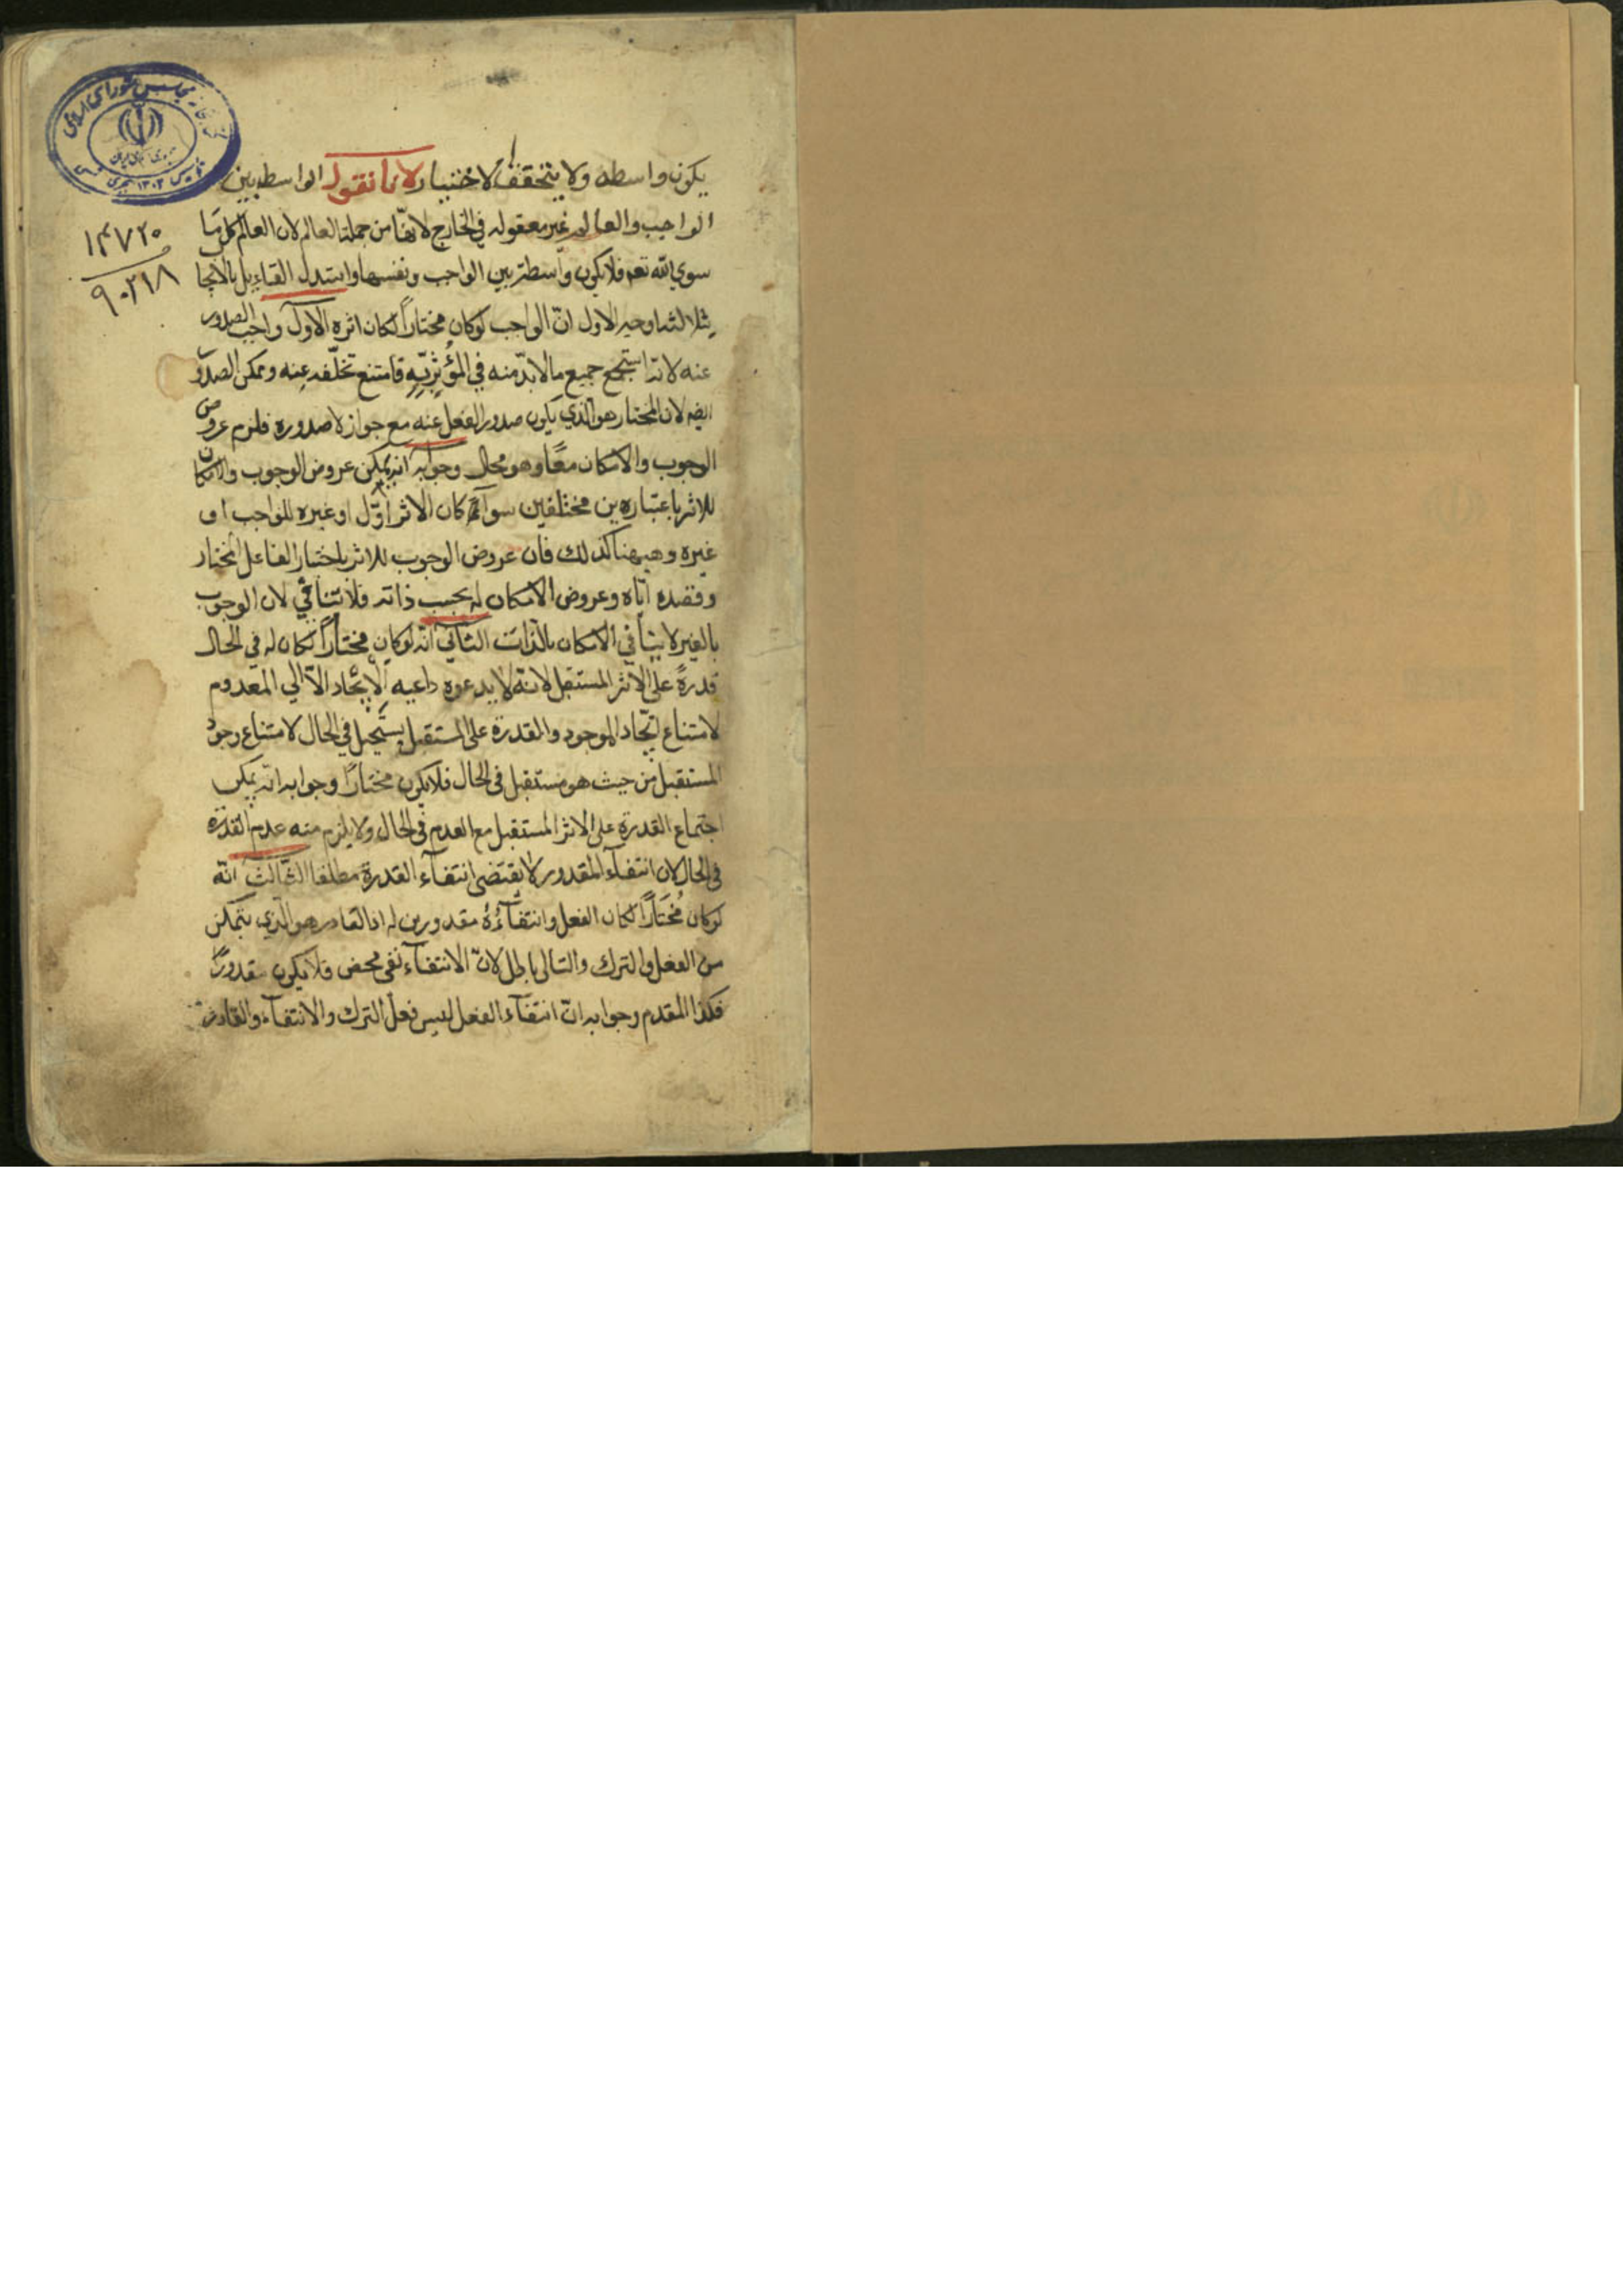 يكون واسطه ولا يتحقق الاختيار لانا نقول الواسطه بين
الواجب والعالم غير معقوله في الخارج لانها من جملة العالم لان العالم كل ما
سوي الله تعم فلا يكون واسطة بين الواجب ونفسها واستدل القايل بالايجا
بثلاثه اوجه الاول انّ الواجب لو كان مختاراً لكان اثره الاول واجب الصدور
عنه لانه استجمع جميع ما لا بدّ منه في المؤثريّه فامتنع تخلّفه عنه وممكن الصدور
ايضه لان المختار هو الذي يكون صدور الفعل عنه مع جواز لا صدوره فلزم عروض
الوجوب والامكان معًا وهو محال وجوابه انه يمكن عروض الوجوب والامكان
للاثر باعتبارين مختلفين سوآء كان الاثر اوّل او غيره للواجب او
غيره وهيهنا كذلك فان عروض الوجوب للاثر باختيار الفاعل المختار
وقصده اياه وعروض الامكان له بحسب ذاته فلا تنافي لان الوجوب
بالغير لا ينافي الامكان بالذات الثاني انّه لو كان مختاراً لكان له في الحال
قدرةً على الاثر المستقبل لانه لا يدعوه داعيه الايجاد الّا الي المعدوم
لامتناع ايجاد الموجود والقدرة على المستقبل يستحيل في الحال لامتناع وجود
المستقبل من حيث هو مستقبل في الحال فلا يكون مختارًا وجوابه انه يمكن
اجتماع القدرة على الاثر المستقبل مع العدم في الحال ولا يلزم منه عدم القدرة
في الحال لان انتفآء المقدور لا يقتضى انتفآء القدرة مطلقا الثالث انّه
لو كان مُختارًا لكان الفعل وانتفآؤه مقدورين له اذ القادر هو الذي يتمكن
من الفعل والترك والتالى باطل لانّ الانتفآء نفى محض فلا يكون مقدورًا
فكذا المقدم وجوابه انّ انتفآء الفعل ليس فعل الترك والانتفآء والقادر
مجلس شورای اسلامی
۱۴۷۲۰
۹۰۲۱۸